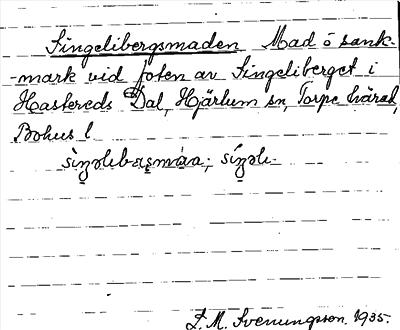 Singelibergsmaden Mad ō sank-
-mark vid foten av Singeliberget i
Hastereds Dal, Hjärtum sn, Torpe härad,
Bohus l
L. M. Svenungsson. 1935.